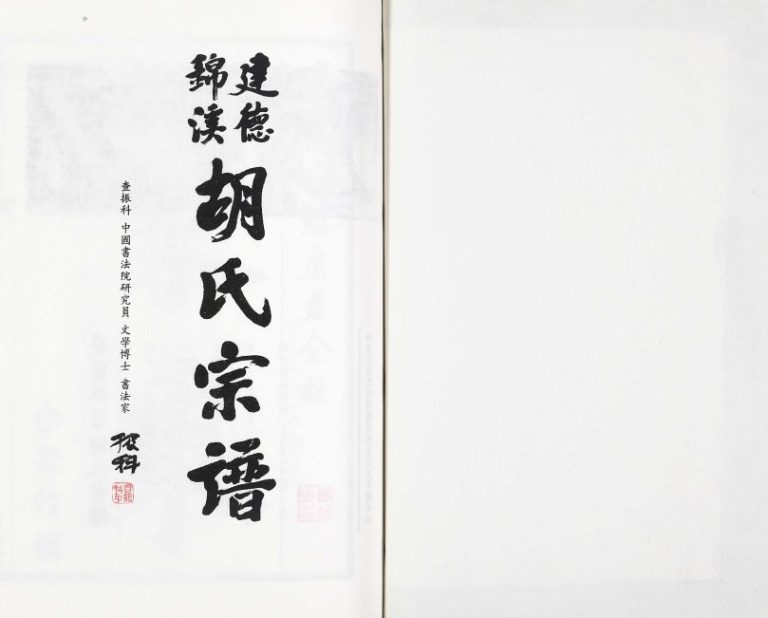 建德
錦溪
胡氏宗譜
查振科 中國書法院研究員 文學博士 書法家
振科